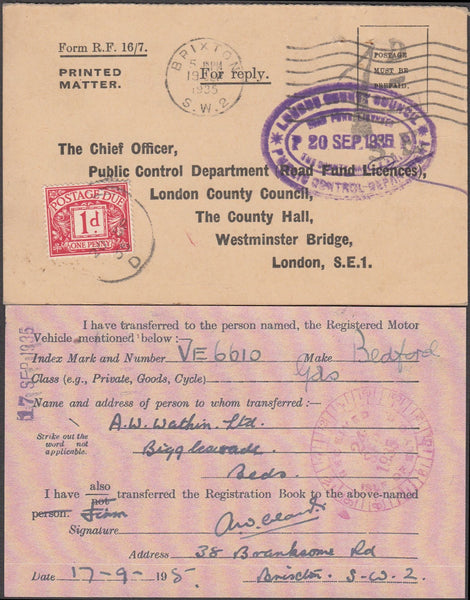 Form R.F. 16/7.
PRINTED
MATTER.
For reply.
BRIXTON
19
1935
S.W.2
POSTAGE
MUST BE
PREPAID.
LONDON COUNTY COUNCIL
20 SEP 1935
The Chief Officer,
Public Control Department (Road Fund Licences),
London County Council,
The County Hall,
Westminster Bridge,
London, S.E.1.
POSTAGE DUE
1d
ONE PENNY
I have transferred to the person named, the Registered Motor
Vehicle mentioned below :—
Index Mark and Number VE 6610 Make Bedford
Class (e.g., Private, Goods, Cycle) Gds
Name and address of person to whom transferred :—
A.W. Watkin Ltd.
Strike out the
word not
applicable.
Biggleswade
Beds.
I have also
not transferred the Registration Book to the above-named
person. Firm
Signature
Address 38 Branksome Rd
Date 17-9-1935 Brixton S.W.2.
17 SEP 1935
1935